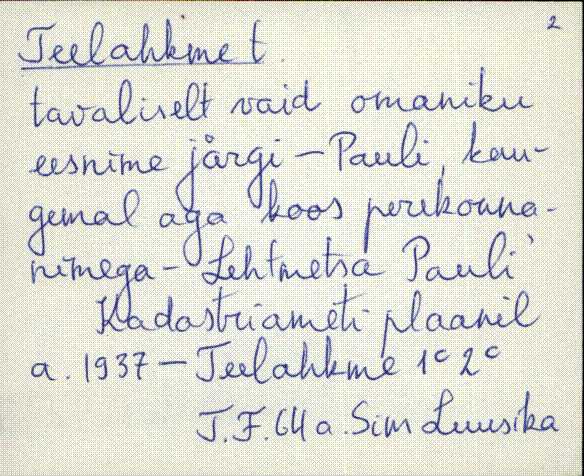 2
Teelahkme t.
tavaliselt vaid omaniku
eesnime järgi – Pauli, kau-
gemal aga koos perekonna-
nimega – Lehtmetsa Pauli
Kadastriameti plaanil
a. 1937 – Teelahkme 1c 2c
J.F. 64 a. Sim Luusika